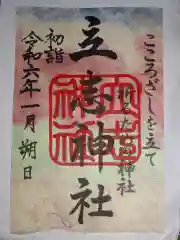 こころざしを立て
祈る
神社
立志神社
初詣
令和六年一月朔日